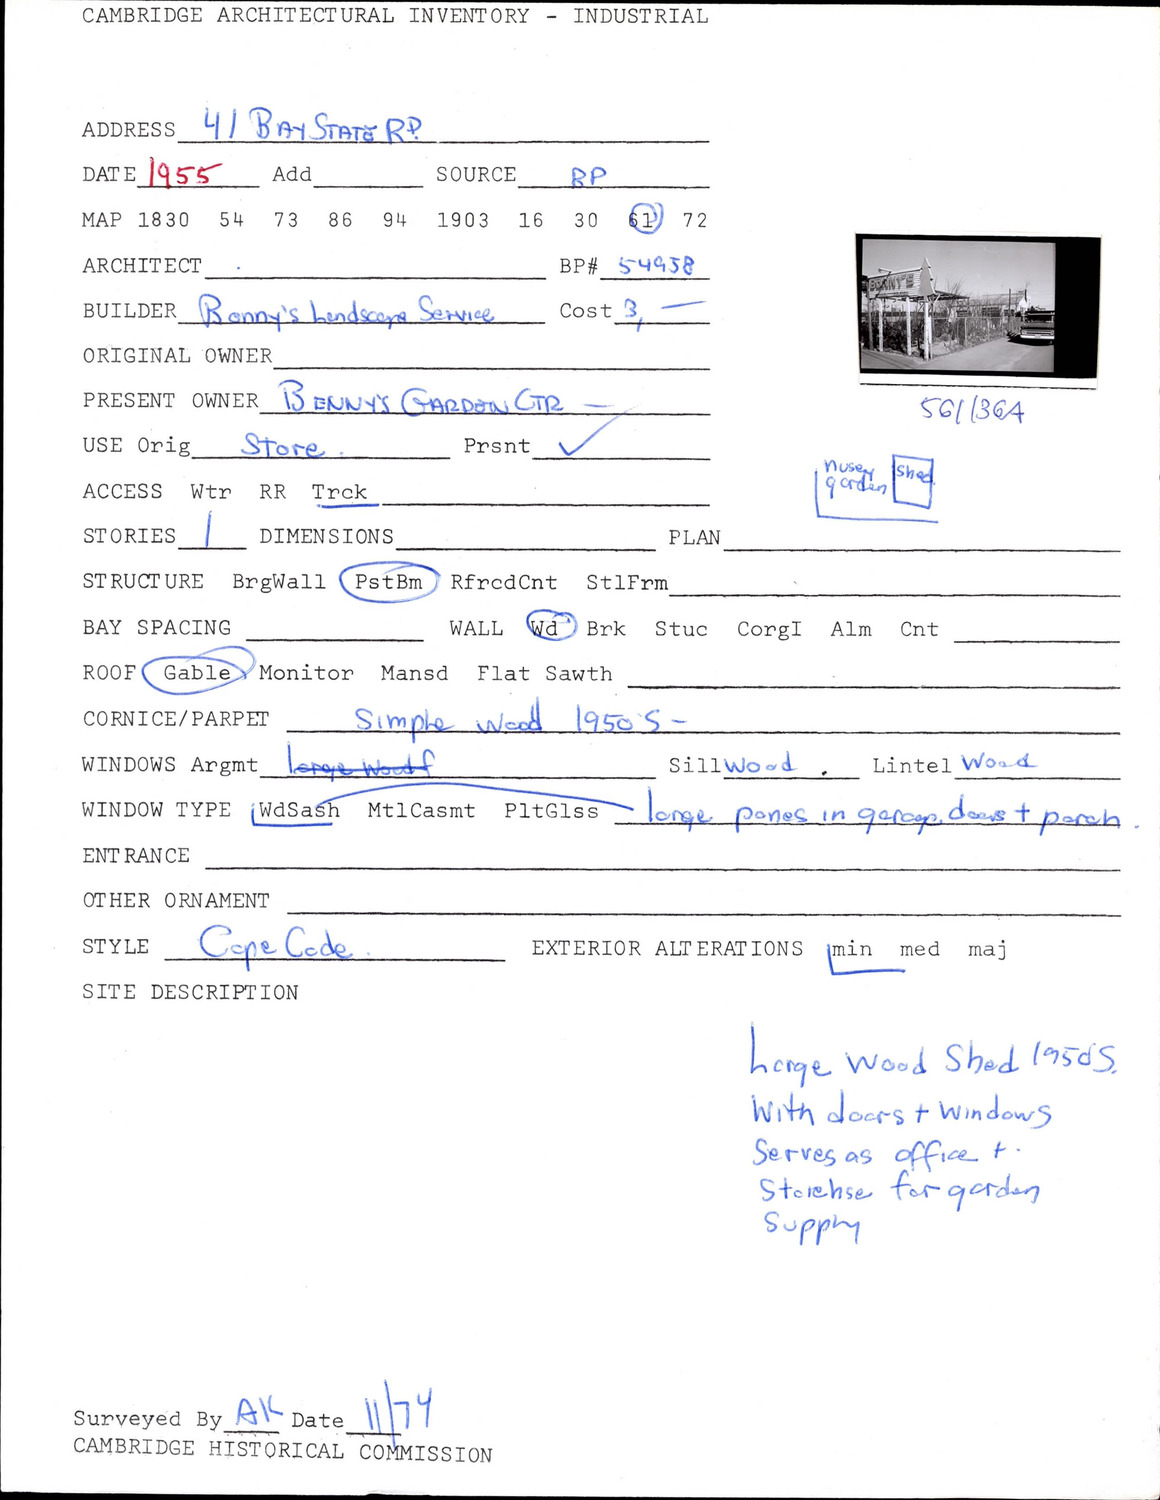 CAMBRIDGE ARCHITECTURAL INVENTORY - INDUSTRIAL
ADDRESS 41 BAY STATE RD.
DATE 1955 Add SOURCE BP
MAP 1830 54 73 86 94 1903 16 30 61 72
ARCHITECT BP# 54938
BUILDER Benny's Landscape Service Cost 3, —
ORIGINAL OWNER
PRESENT OWNER BENNY'S GARDEN CTR —
BENNY'S
561/36A
USE Orig Store Prsnt ✓
nusey garden shed
ACCESS Wtr RR Trck
STORIES 1 DIMENSIONS PLAN
STRUCTURE BrgWall PstBm RfrcdCnt StlFrm
BAY SPACING WALL Wd Brk Stuc CorgI Alm Cnt
ROOF Gable Monitor Mansd Flat Sawth
CORNICE/PARPET Simple Wood 1950'S -
WINDOWS Argmt large wood Sill Wood . Lintel Wood
WINDOW TYPE WdSash MtlCasmt PltGlss large panes in garage, doors + porch .
ENTRANCE
OTHER ORNAMENT
STYLE Cape Code. EXTERIOR ALTERATIONS min med maj
SITE DESCRIPTION
Large Wood Shed 1950'S.
With doors + windows
Serves as office +
Storehse for garden
Supply
Surveyed By AK Date 11/74
CAMBRIDGE HISTORICAL COMMISSION